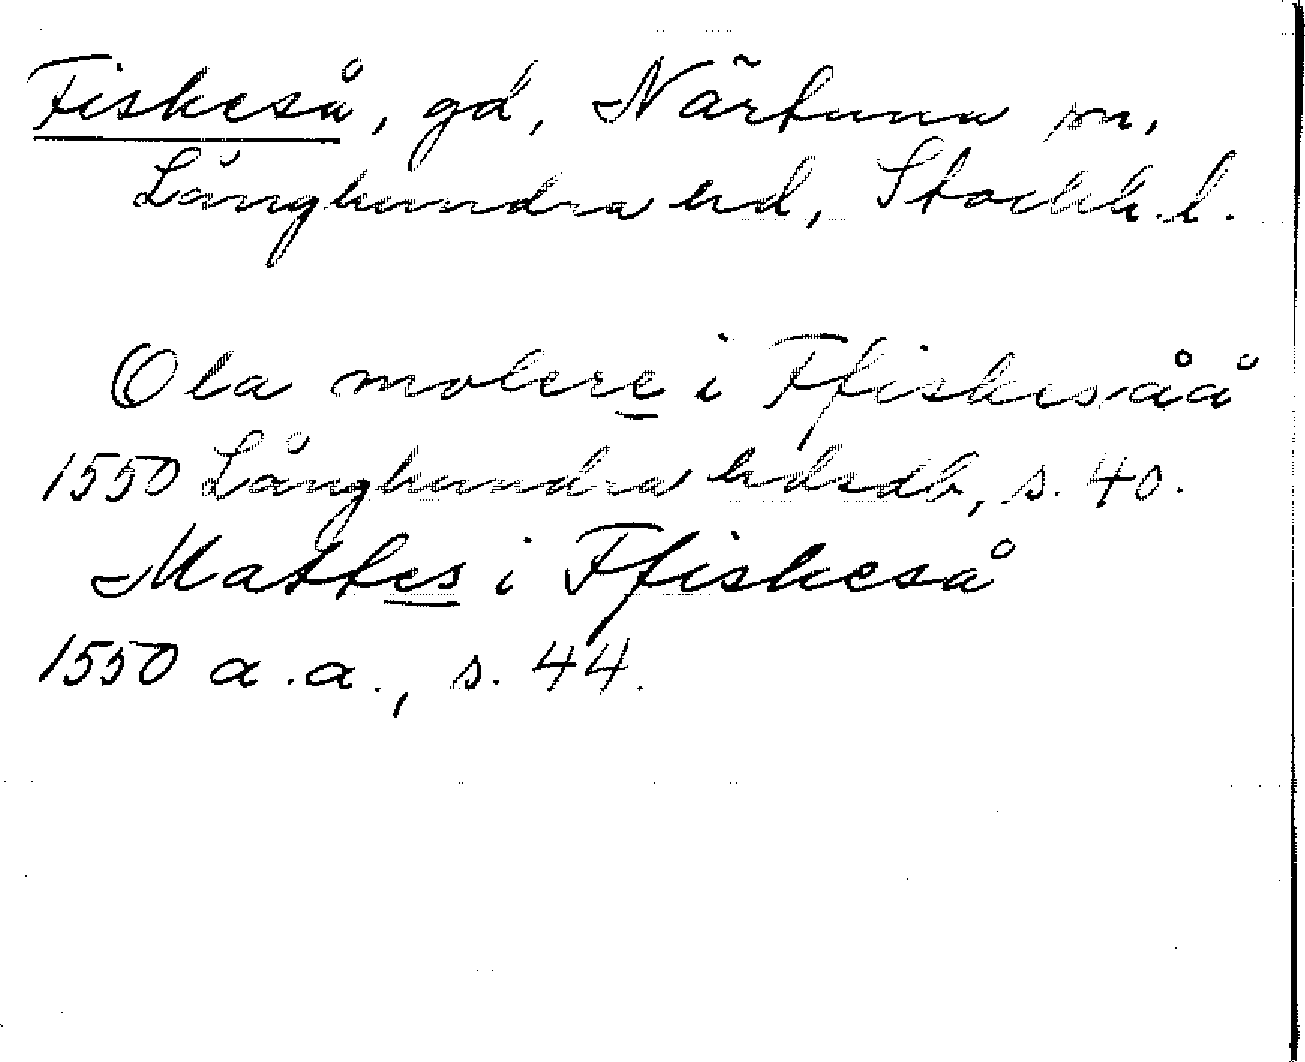 Fiskeså, gd, Närtuna sn,
Långhundra hd, Stockh. l.
Ola molere i Ffiskesåå
1550 Långhundra hdsdb, s. 40.
Mattes i Ffiskeså
1550 a.a., s. 44.